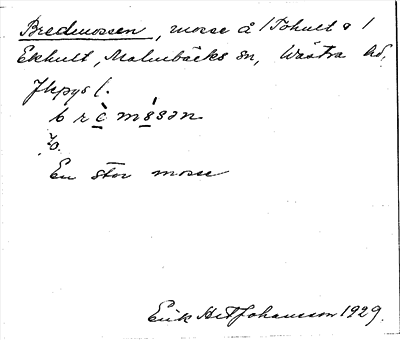 Bredmossen, mosse å 1 Tohult & 1
Ekhult, Malmbäcks sn, Västra hd,
Jkpgs l.
brèmósən
En stor mosse
Erik Ant Johansson 1929.